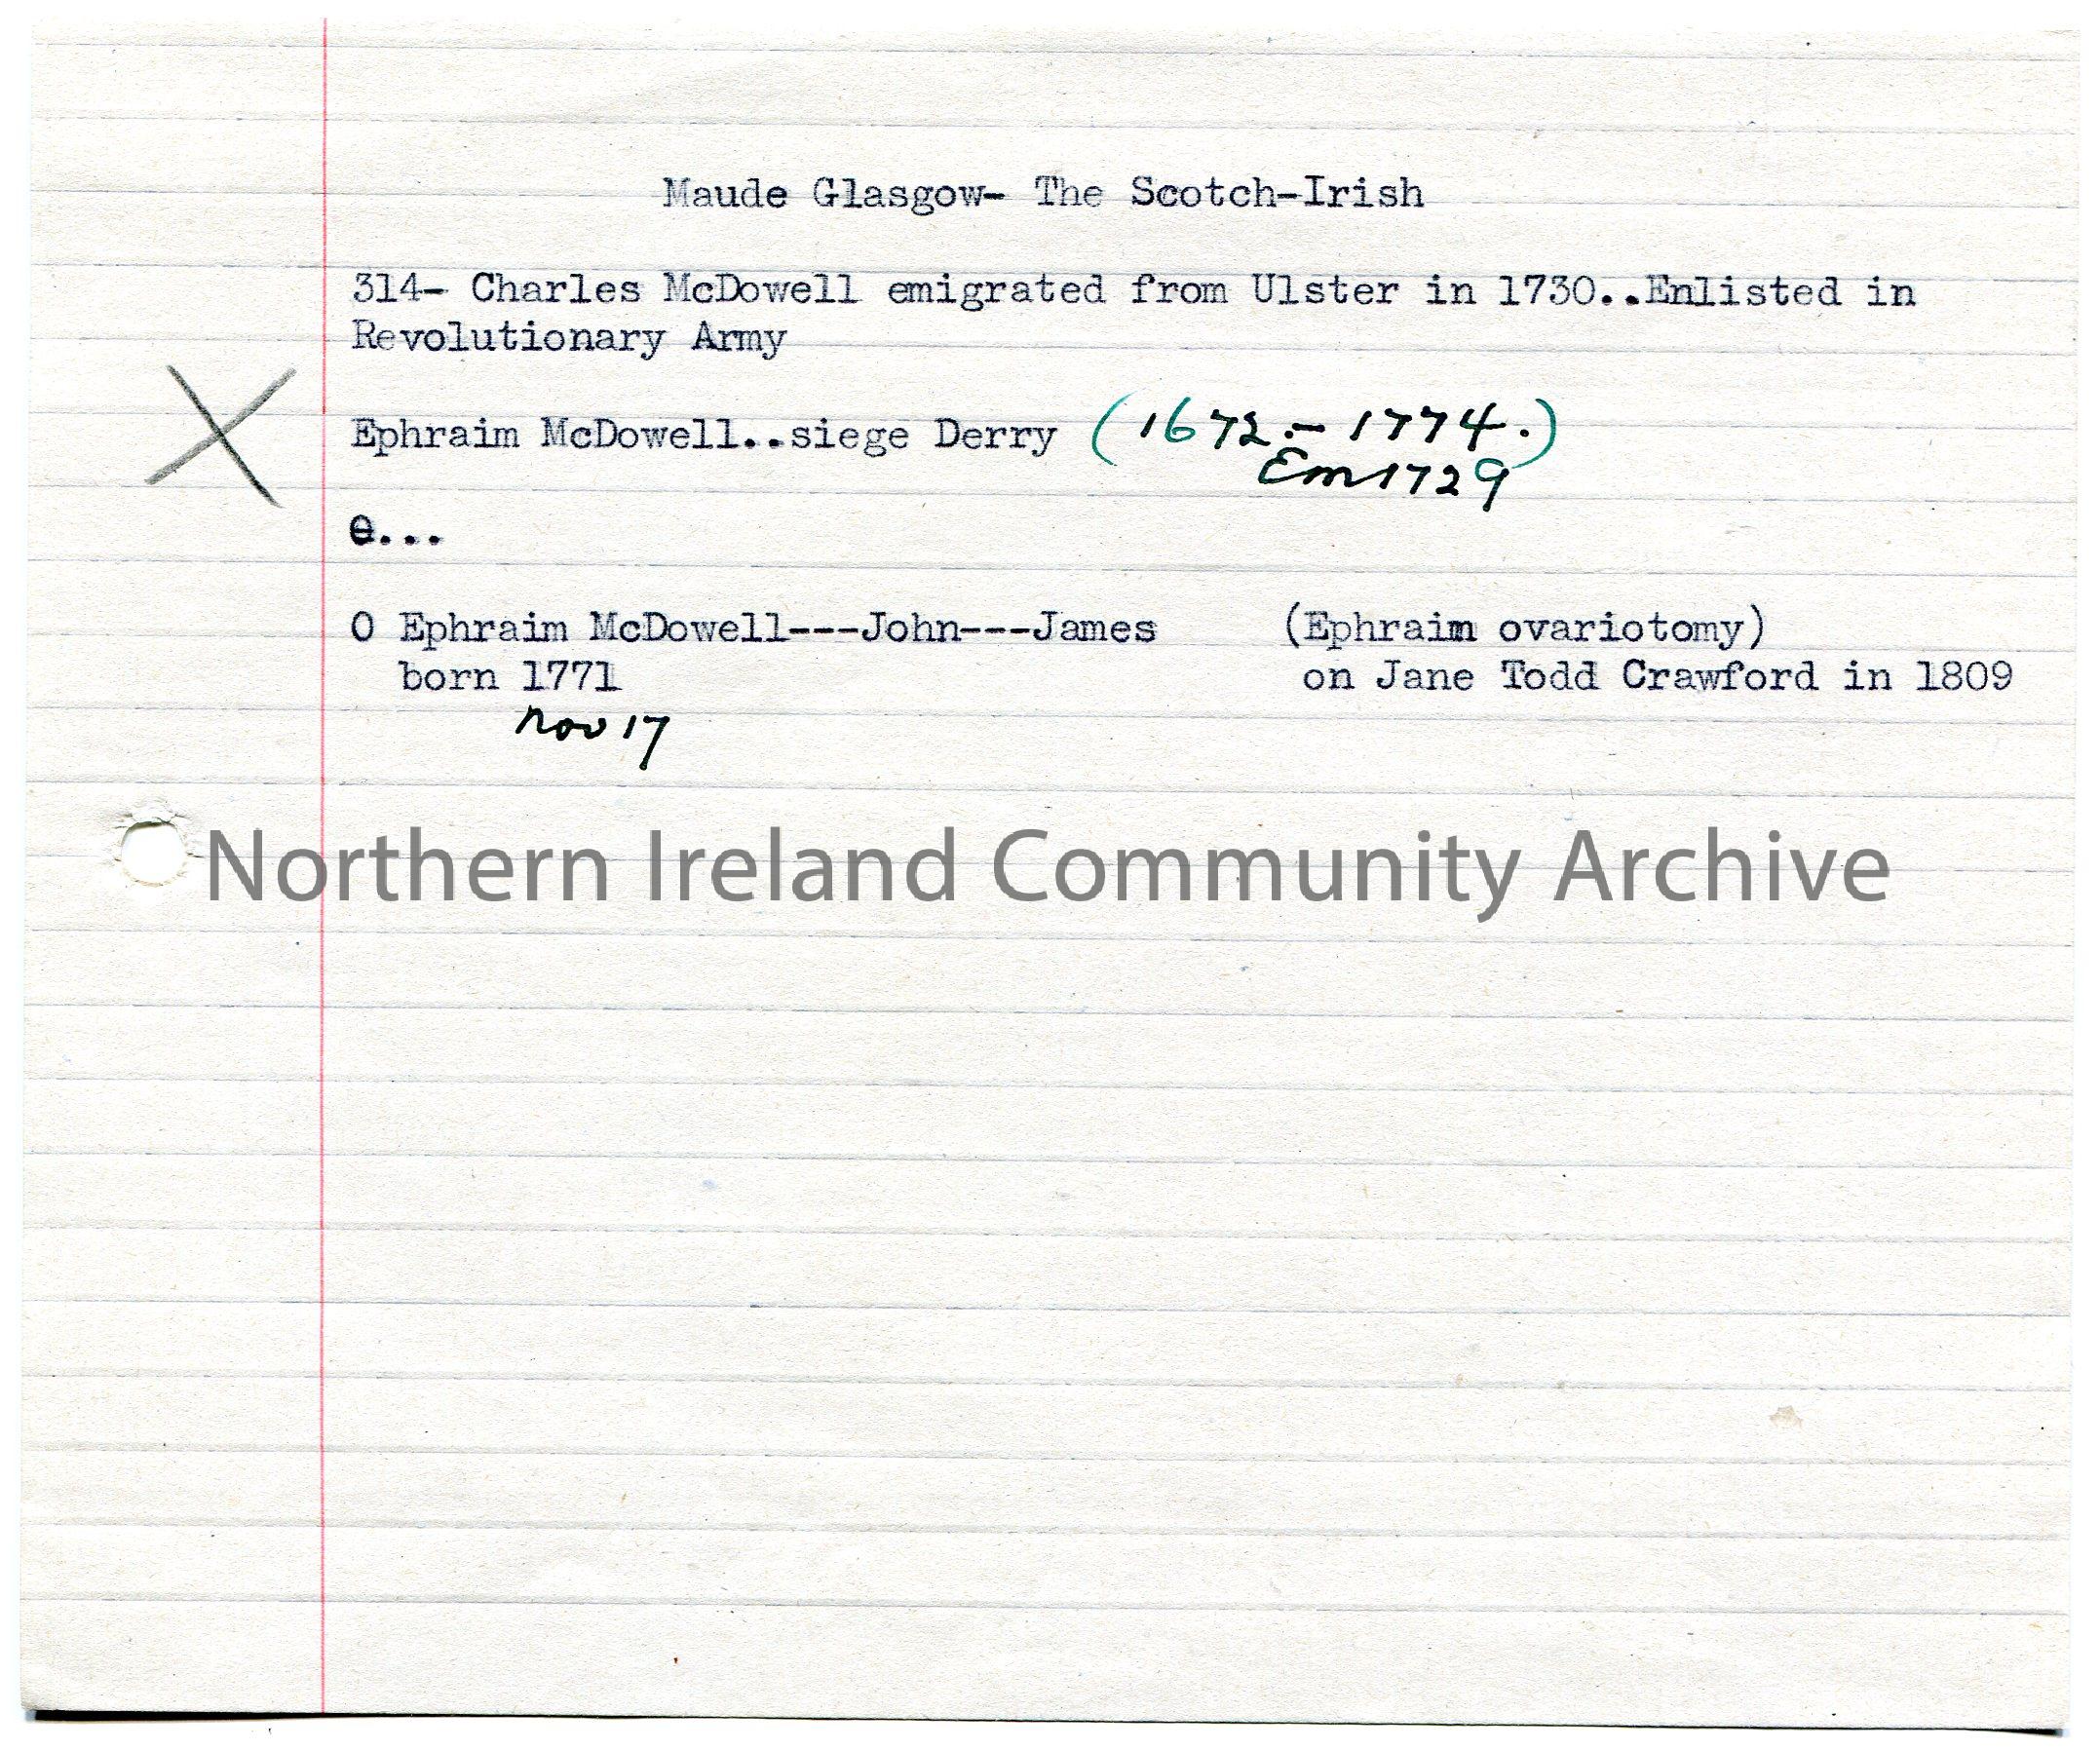 Maude Glasgow- The Scotch-Irish
314- Charles McDowell emigrated from Ulster in 1730..Enlisted in
Revolutionary Army
Ephraim McDowell..siege Derry (1672.- 1774.)
Em 1729
e...
O Ephraim McDowell---John---James (Ephraim ovariotomy)
born 1771 on Jane Todd Crawford in 1809
Nov 17
Northern Ireland Community Archive